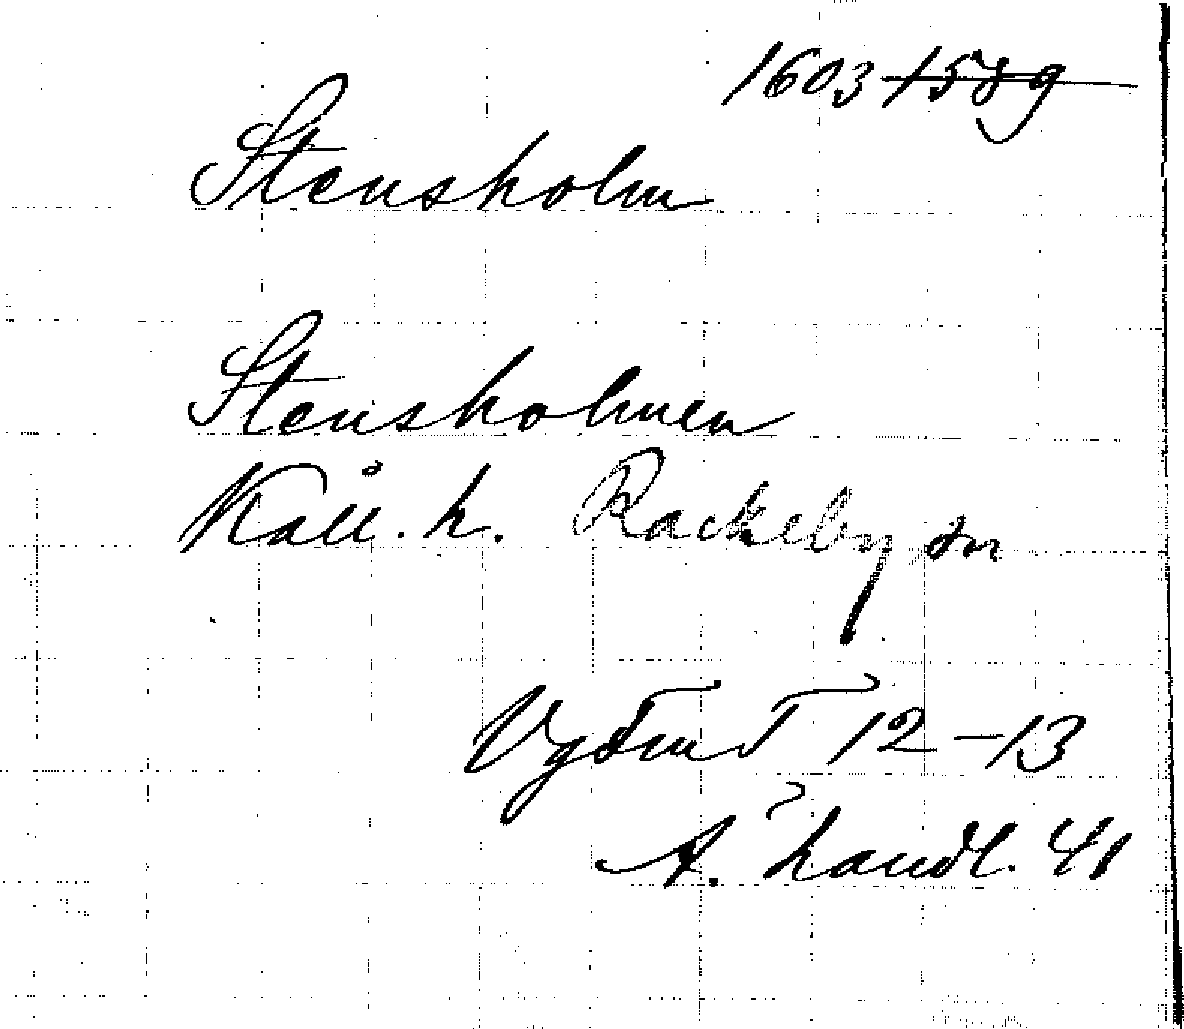 1603 1589
Stensholm
Stensholmen
Kåll. h. Rackeby sn
12-13
A. handl. 41